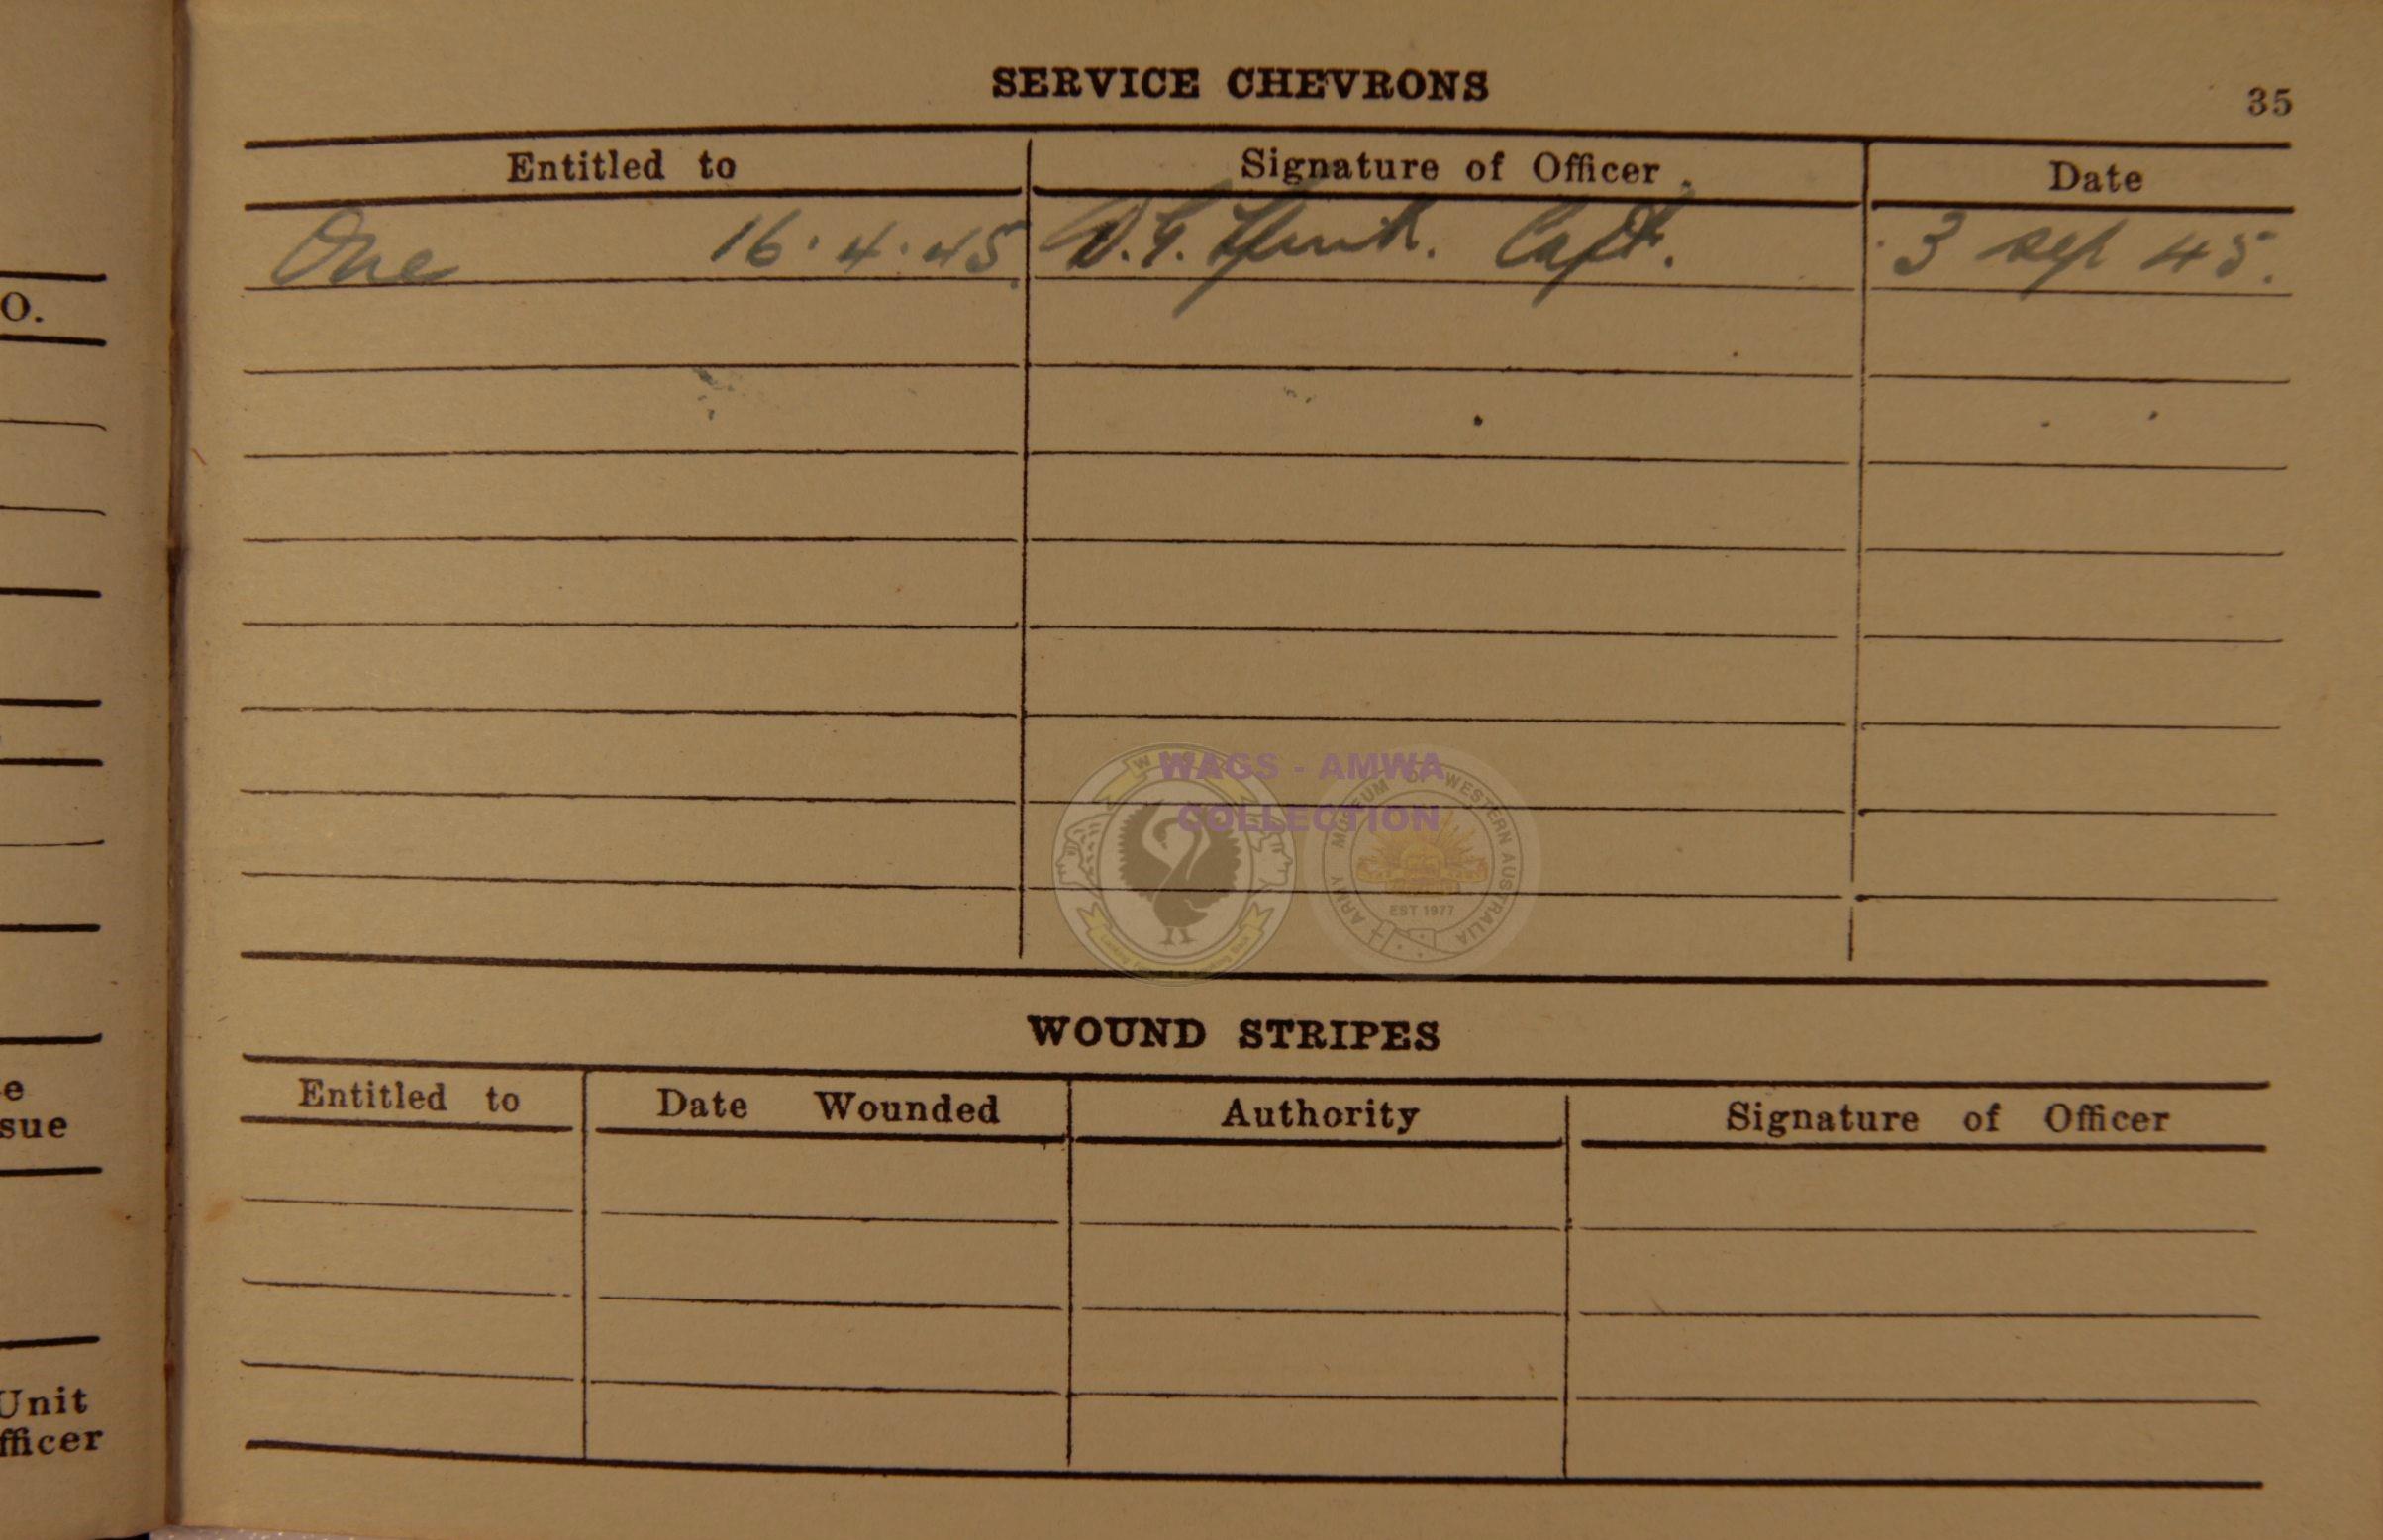 SERVICE CHEVRONS
35
Entitled to Signature of Officer Date
One 16.4.45 Capt. 3 Sep 45.
WAGS - AMWA
COLLECTION
ARMY MUSEUM OF WESTERN AUSTRALIA
EST 1977
WOUND STRIPES
Entitled to Date Wounded Authority Signature of Officer
O.
e
sue
Unit
fficer